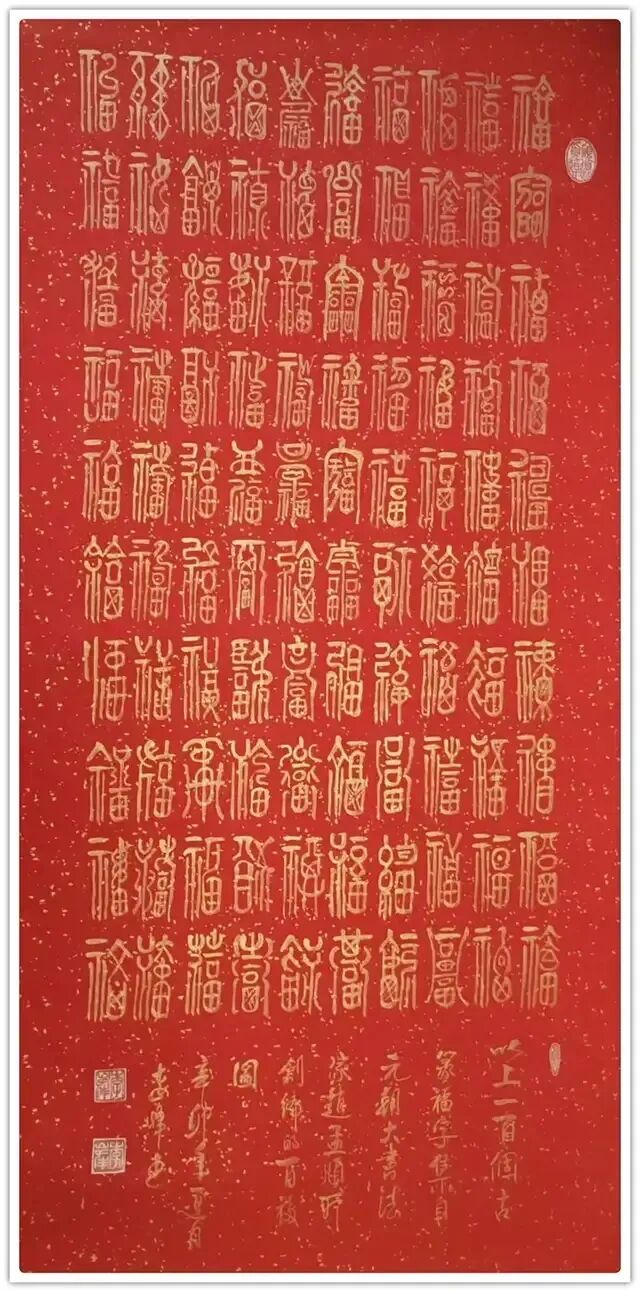 福福福福福福福福福福
福福福福福福福福福福
福福福福福福福福福福
福福福福福福福福福福
福福福福福福福福福福
福福福福福福福福福福
福福福福福福福福福福
福福福福福福福福福福
福福福福福福福福福福
福福福福福福福福福福
以上一百個古
篆福字自
元朝大書法
家趙孟頫所
創的百福
圖
辛卯年月